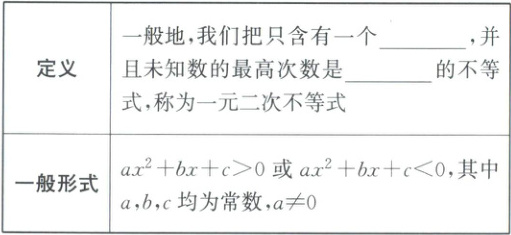 定义
一般地,我们把只含有一个________,并
且未知数的最高次数是________的不等
式,称为一元二次不等式
一般形式
ax²+bx+c>0 或 ax²+bx+c<0,其中
a,b,c 均为常数,a≠0